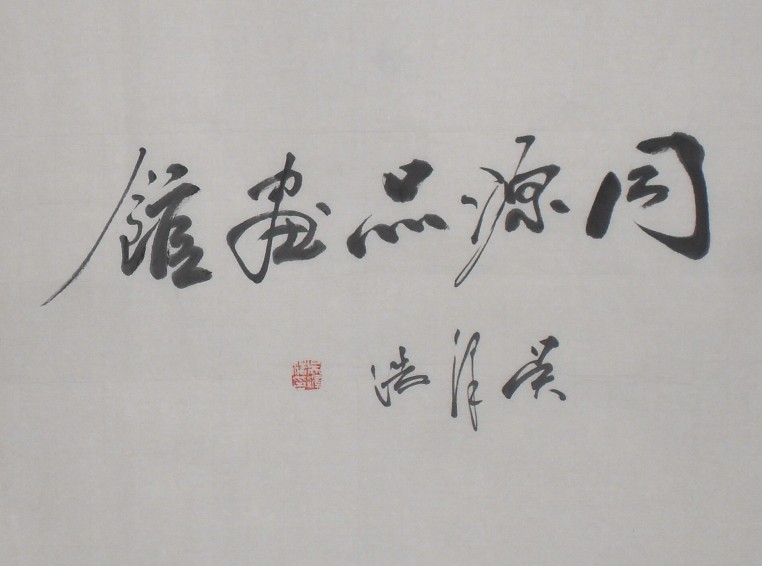 同源品画館
吴泽浩